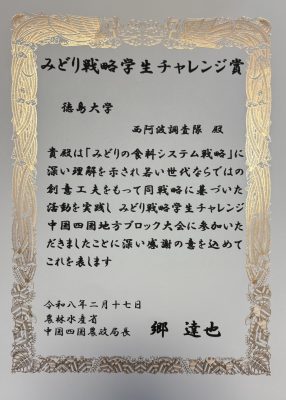 みどり戦略学生チャレンジ賞
徳島大学
西阿波調査隊 殿
貴殿は「みどりの食料システム戦略」に
深い理解を示され若い世代ならではの
創意工夫をもって同戦略に基づいた
活動を実践し みどり戦略学生チャレンジ
中国四国地方ブロック大会に参加いた
だきましたことに深い感謝の意を込めて
これを表します
令和八年二月十七日
農林水産省
中国四国農政局長 郷 達也